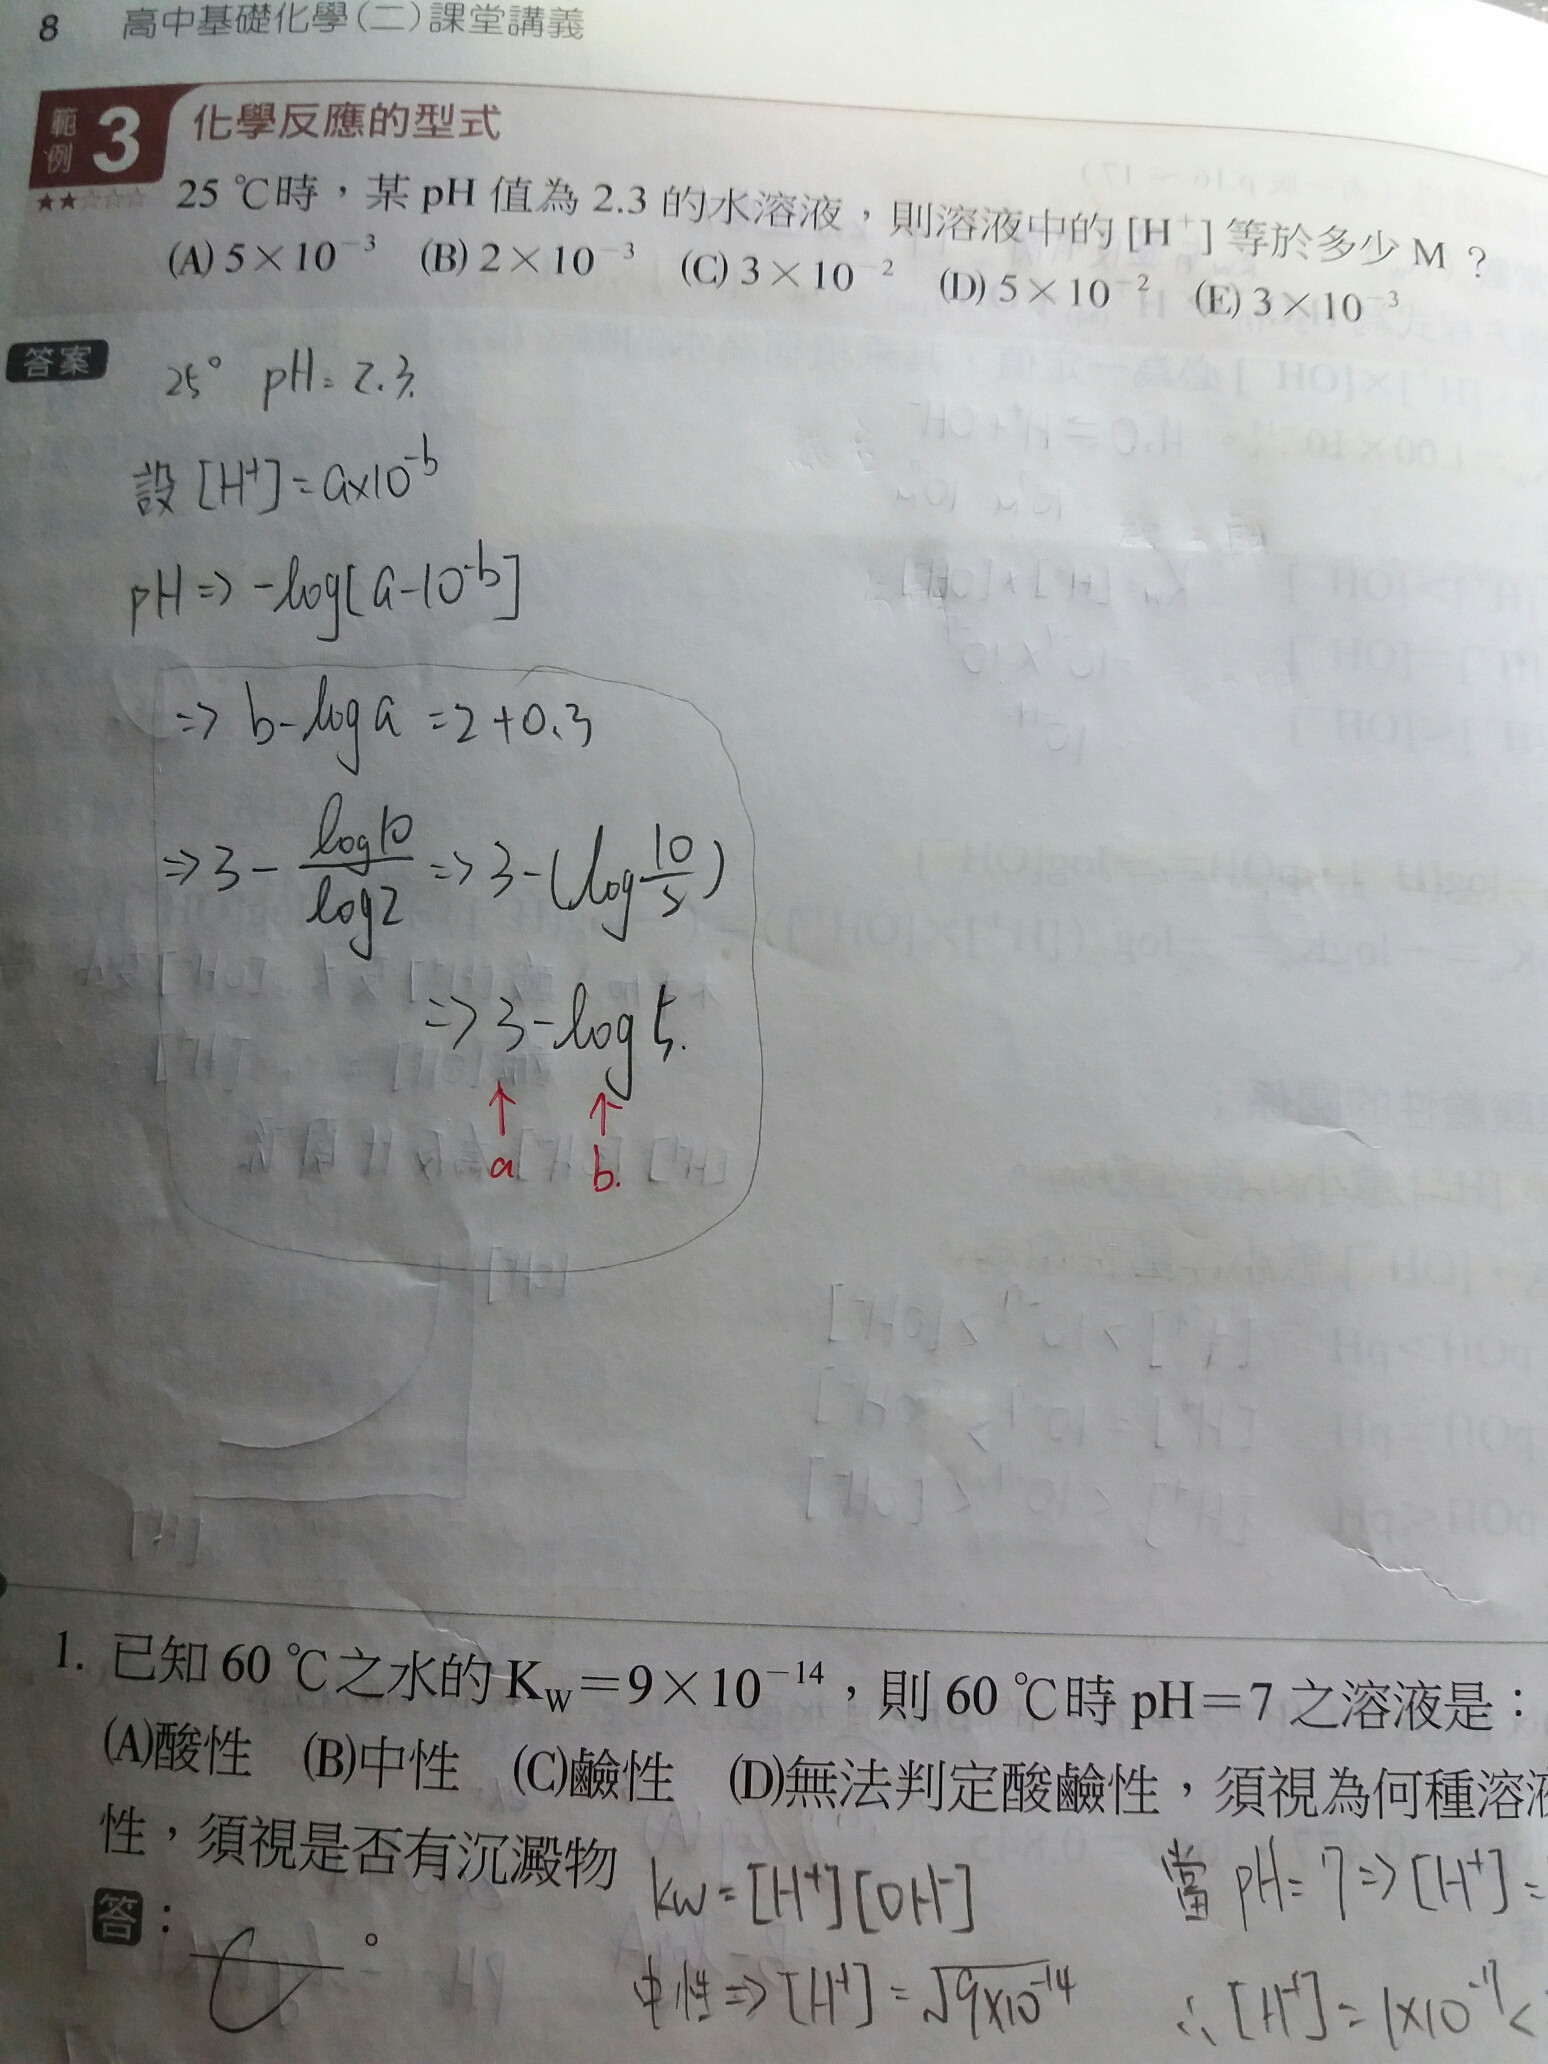 8 高中基礎化學(二)課堂講義
範例 3 化學反應的型式
★★☆☆☆ 25 ℃時，某 pH 值為 2.3 的水溶液，則溶液中的 [H⁺] 等於多少 M ？
(A) 5×10⁻³ (B) 2×10⁻³ (C) 3×10⁻² (D) 5×10⁻² (E) 3×10⁻³
答案 25° pH = 2.3.
設 [H⁺] = a×10⁻ᵇ
pH => -log[a-10⁻ᵇ]
=> b-log a = 2+0.3
=> 3 - log10/log2 => 3-(log 10/2)
=> 3-log 5.
↑ ↑
a b.
1. 已知 60 ℃之水的 Kw＝9×10⁻¹⁴，則 60 ℃時 pH＝7 之溶液是：
(A)酸性 (B)中性 (C)鹼性 (D)無法判定酸鹼性，須視為何種溶液
性，須視是否有沉澱物
答： C 。
kw = [H⁺][OH⁻]
當 pH = 7 => [H⁺] =
中性 => [H⁺] = √9×10⁻¹⁴
∴ [H⁺] = 1×10⁻⁷ <